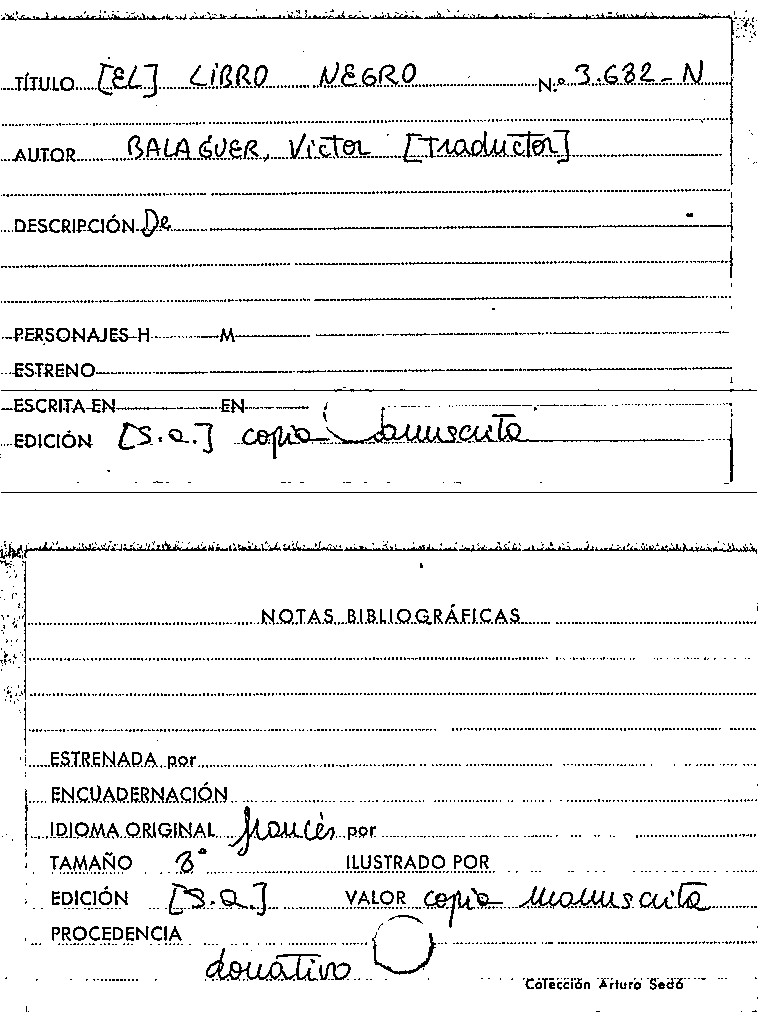 TÍTULO [EL] LIBRO NEGRO N.º 3.682-N
AUTOR BALAGUER, Víctor [Traductor]
DESCRIPCIÓN De
PERSONAJES H M
ESTRENO
ESCRITA EN EN
EDICIÓN [S.a.] copia Manuscrita
NOTAS BIBLIOGRÁFICAS
ESTRENADA por
ENCUADERNACIÓN
IDIOMA ORIGINAL francés por
TAMAÑO 8º ILUSTRADO POR
EDICIÓN [S.a.] VALOR copia Manuscrita
PROCEDENCIA
donativo
Colección Arturo Sedó